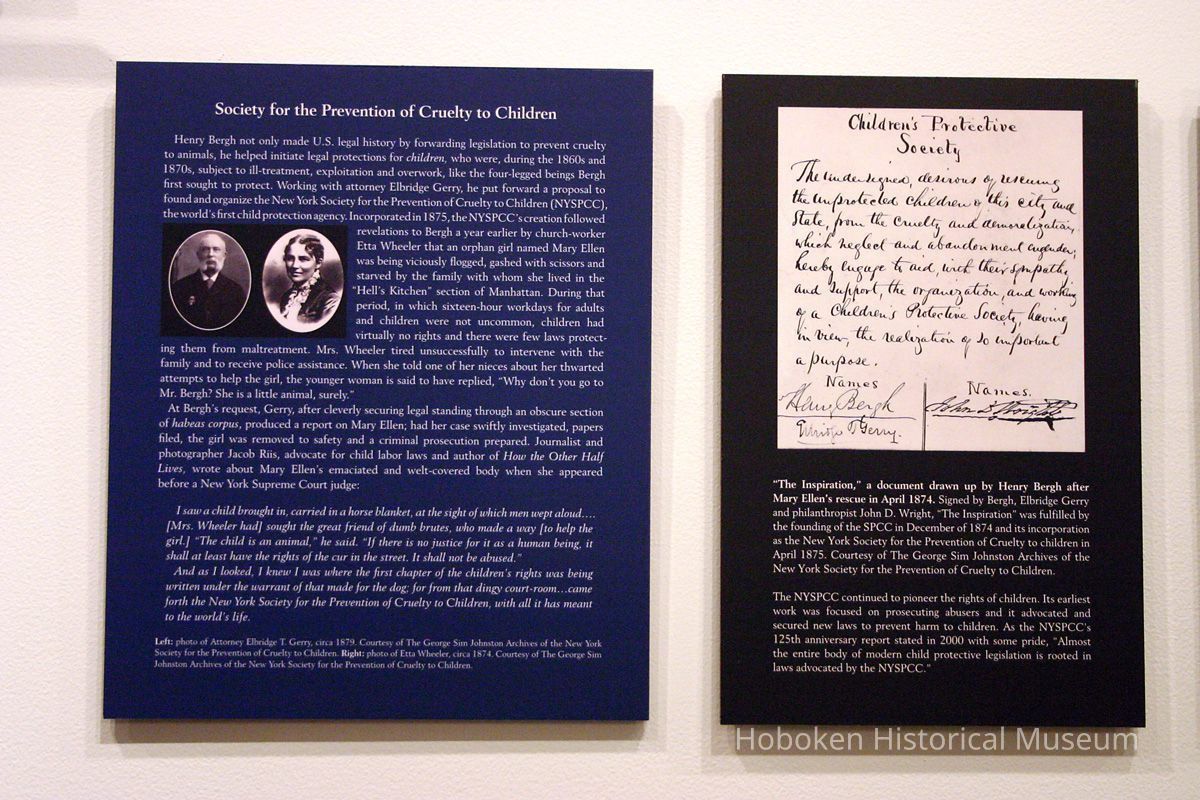 Society for the Prevention of Cruelty to Children
Henry Bergh not only made U.S. legal history by forwarding legislation to prevent cruelty
to animals, he helped initiate legal protections for children, who were, during the 1860s and
1870s, subject to ill-treatment, exploitation and overwork, like the four-legged beings Bergh
first sought to protect. Working with attorney Elbridge Gerry, he put forward a proposal to
found and organize the New York Society for the Prevention of Cruelty to Children (NYSPCC),
the world's first child protection agency. Incorporated in 1875, the NYSPCC's creation followed
revelations to Bergh a year earlier by church-worker
Etta Wheeler that an orphan girl named Mary Ellen
was being viciously flogged, gashed with scissors and
starved by the family with whom she lived in the
"Hell's Kitchen" section of Manhattan. During that
period, in which sixteen-hour workdays for adults
and children were not uncommon, children had
virtually no rights and there were few laws protect-
ing them from maltreatment. Mrs. Wheeler tired unsuccessfully to intervene with the
family and to receive police assistance. When she told one of her nieces about her thwarted
attempts to help the girl, the younger woman is said to have replied, "Why don't you go to
Mr. Bergh? She is a little animal, surely."
At Bergh's request, Gerry, after cleverly securing legal standing through an obscure section
of habeas corpus, produced a report on Mary Ellen; had her case swiftly investigated, papers
filed, the girl was removed to safety and a criminal prosecution prepared. Journalist and
photographer Jacob Riis, advocate for child labor laws and author of How the Other Half
Lives, wrote about Mary Ellen's emaciated and welt-covered body when she appeared
before a New York Supreme Court judge:
I saw a child brought in, carried in a horse blanket, at the sight of which men wept aloud....
[Mrs. Wheeler had] sought the great friend of dumb brutes, who made a way [to help the
girl.] "The child is an animal," he said. "If there is no justice for it as a human being, it
shall at least have the rights of the cur in the street. It shall not be abused."
And as I looked, I knew I was where the first chapter of the children's rights was being
written under the warrant of that made for the dog; for from that dingy court-room...came
forth the New York Society for the Prevention of Cruelty to Children, with all it has meant
to the world's life.
Left: photo of Attorney Elbridge T. Gerry, circa 1879. Courtesy of The George Sim Johnston Archives of the New York
Society for the Prevention of Cruelty to Children. Right: photo of Etta Wheeler, circa 1874. Courtesy of The George Sim
Johnston Archives of the New York Society for the Prevention of Cruelty to Children.
Children's Protective
Society
The undersigned, desirous of rescuing
the unprotected children of this city and
State, from the cruelty and demoralization,
which neglect and abandonment engender,
hereby engage to aid, with their sympathy
and support, the organization, and working
of a Children's Protective Society, having
in view, the realization of so important
a purpose.
Names
Names.
Henry Bergh
John D. Wright
Elbridge T Gerry.
"The Inspiration," a document drawn up by Henry Bergh after
Mary Ellen's rescue in April 1874. Signed by Bergh, Elbridge Gerry
and philanthropist John D. Wright, "The Inspiration" was fulfilled by
the founding of the SPCC in December of 1874 and its incorporation
as the New York Society for the Prevention of Cruelty to children in
April 1875. Courtesy of The George Sim Johnston Archives of the
New York Society for the Prevention of Cruelty to Children.
The NYSPCC continued to pioneer the rights of children. Its earliest
work was focused on prosecuting abusers and it advocated and
secured new laws to prevent harm to children. As the NYSPCC's
125th anniversary report stated in 2000 with some pride, "Almost
the entire body of modern child protective legislation is rooted in
laws advocated by the NYSPCC."
Hoboken Historical Museum